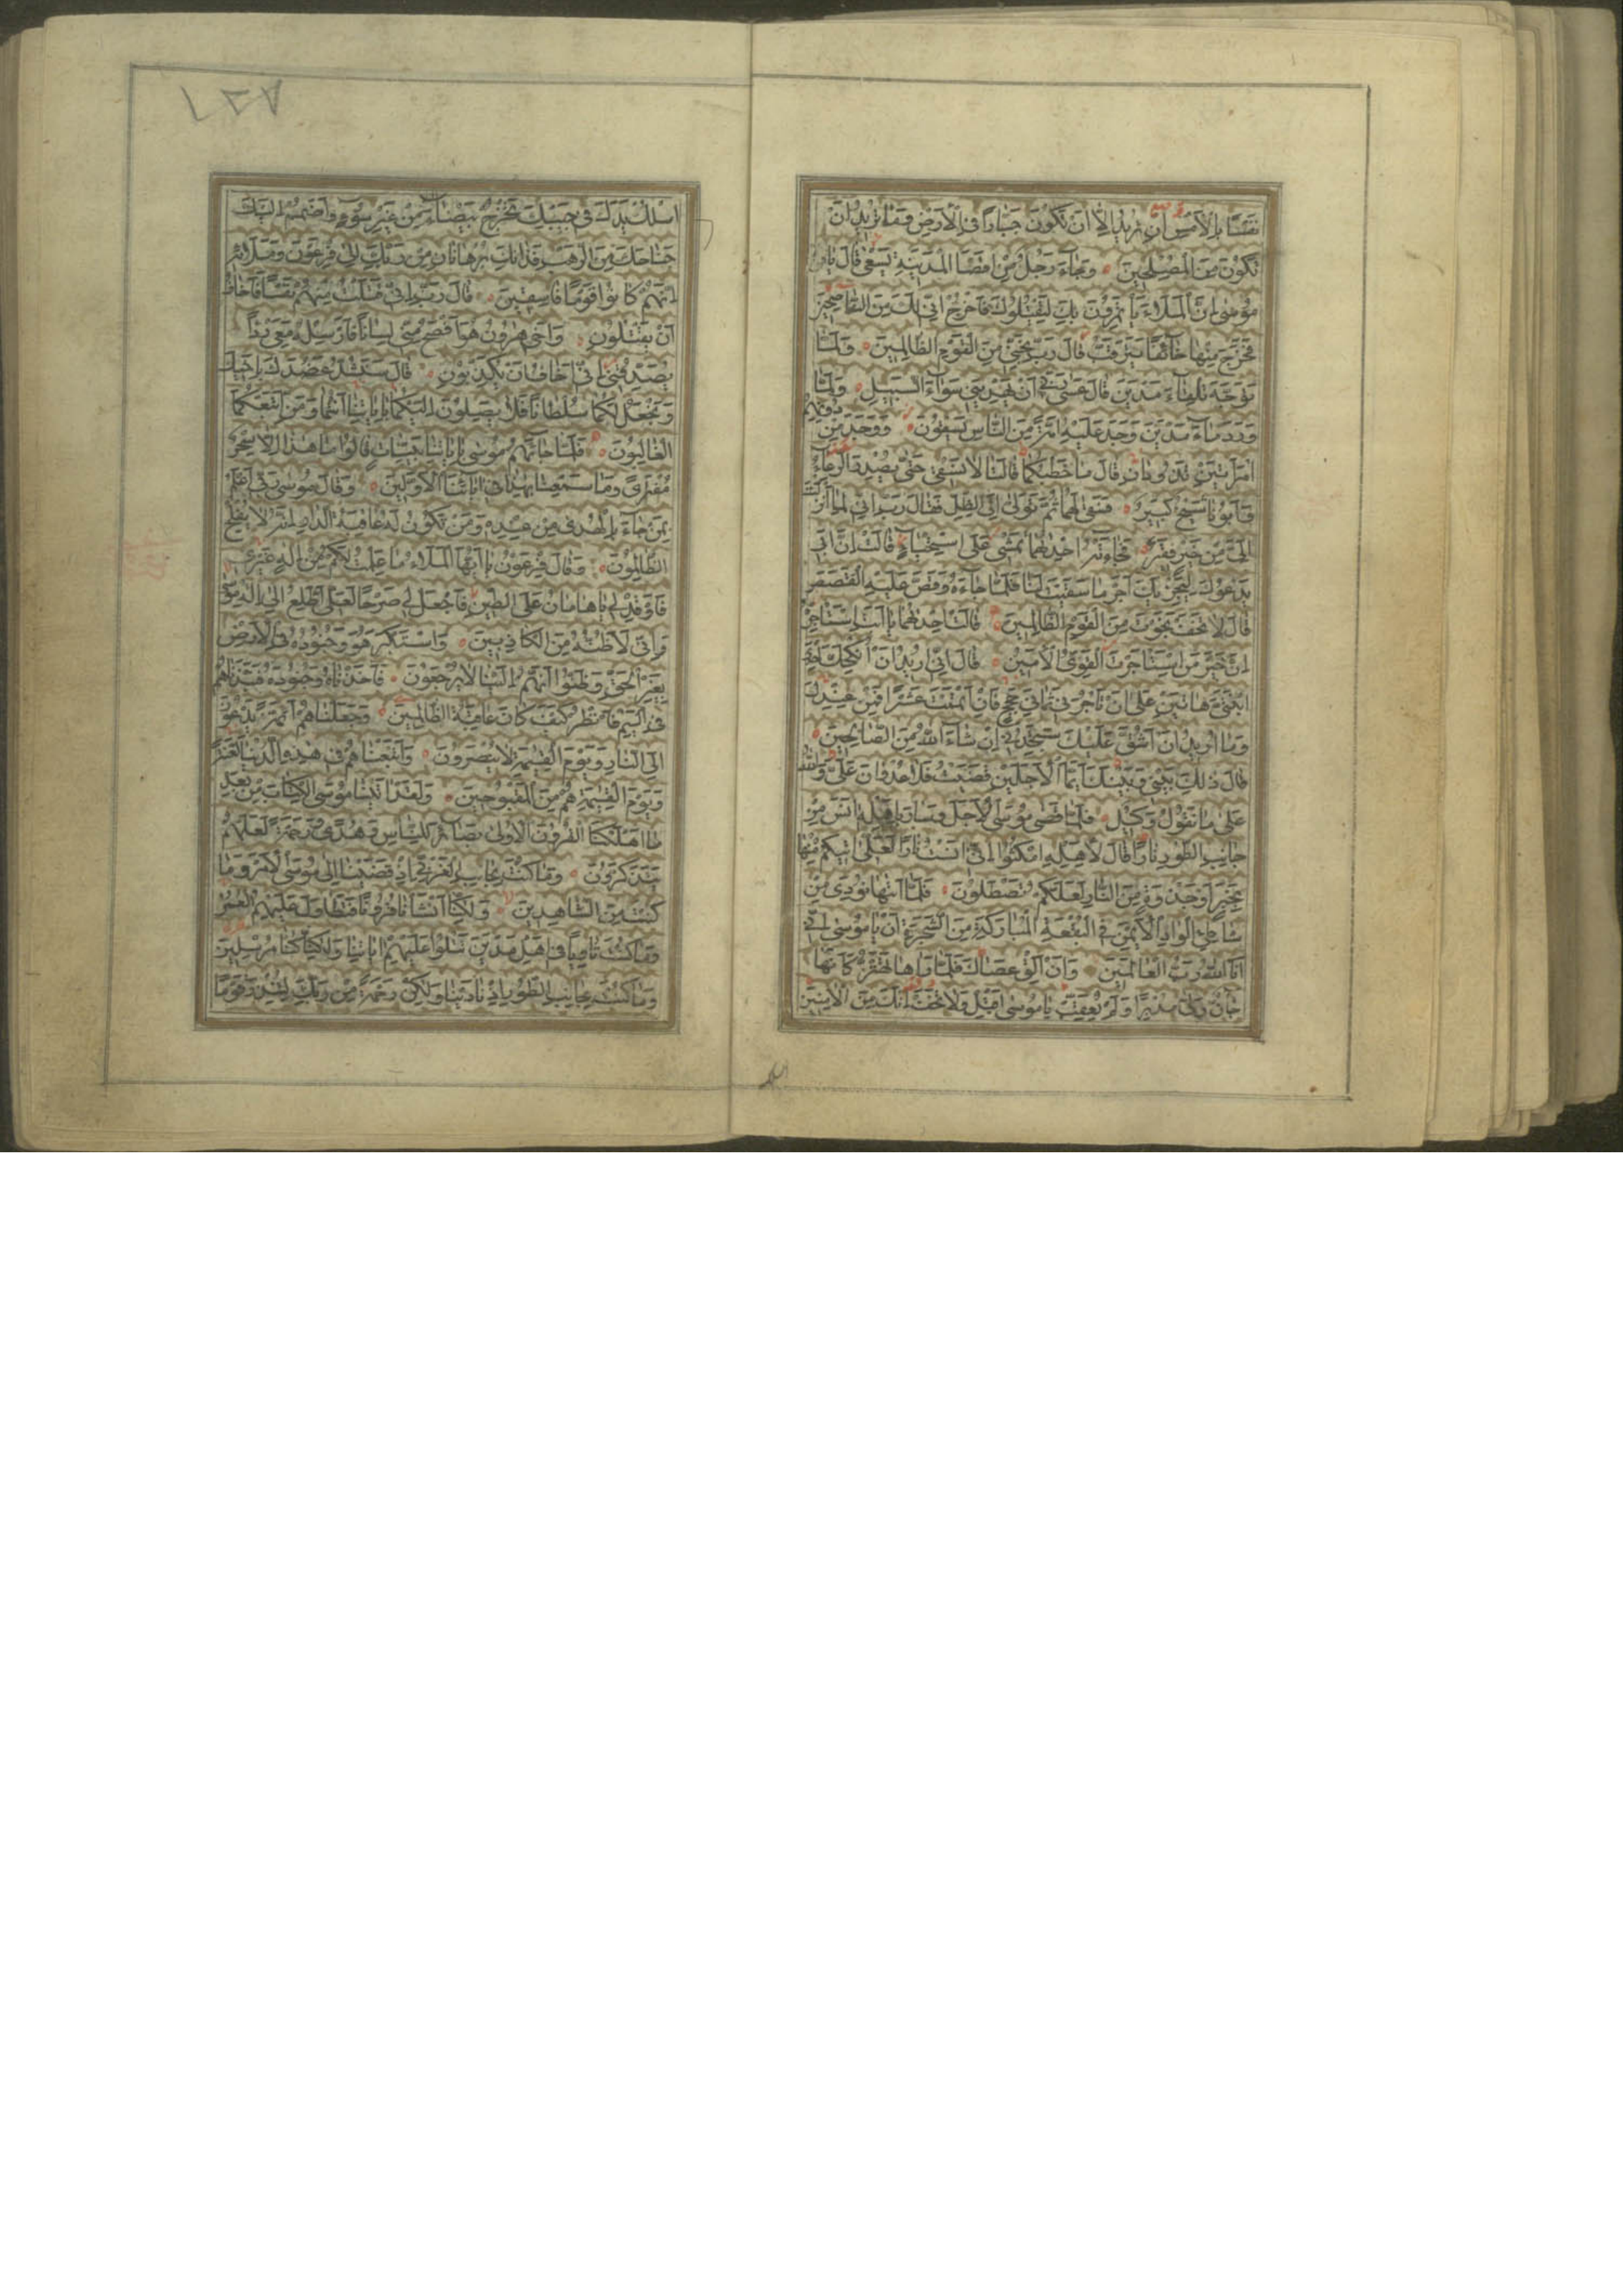 نَفْسًا بِالْأَمْسِ إِنْ تُرِيدُ إِلَّا أَنْ تَكُونَ جَبَّارًا فِي الْأَرْضِ وَمَا تُرِيدُ أَنْ
تَكُونَ مِنَ الْمُصْلِحِينَ وَجَاءَ رَجُلٌ مِنْ أَقْصَا الْمَدِينَةِ يَسْعَى قَالَ يَا
مُوسَى إِنَّ الْمَلَأَ يَأْتَمِرُونَ بِكَ لِيَقْتُلُوكَ فَاخْرُجْ إِنِّي لَكَ مِنَ النَّاصِحِينَ
فَخَرَجَ مِنْهَا خَائِفًا يَتَرَقَّبُ قَالَ رَبِّ نَجِّنِي مِنَ الْقَوْمِ الظَّالِمِينَ وَلَمَّا
تَوَجَّهَ تِلْقَاءَ مَدْيَنَ قَالَ عَسَى رَبِّي أَنْ يَهْدِيَنِي سَوَاءَ السَّبِيلِ وَلَمَّا
وَرَدَ مَاءَ مَدْيَنَ وَجَدَ عَلَيْهِ أُمَّةً مِنَ النَّاسِ يَسْقُونَ وَوَجَدَ مِنْ دُونِهِمُ
امْرَأَتَيْنِ تَذُودَانِ قَالَ مَا خَطْبُكُمَا قَالَتَا لَا نَسْقِي حَتَّى يُصْدِرَ الرِّعَاءُ
وَأَبُونَا شَيْخٌ كَبِيرٌ فَسَقَى لَهُمَا ثُمَّ تَوَلَّى إِلَى الظِّلِّ فَقَالَ رَبِّ إِنِّي لِمَا أَنْزَلْتَ
إِلَيَّ مِنْ خَيْرٍ فَقِيرٌ فَجَاءَتْهُ إِحْدَيهُمَا تَمْشِي عَلَى اسْتِحْيَاءٍ قَالَتْ إِنَّ أَبِي
يَدْعُوكَ لِيَجْزِيَكَ أَجْرَ مَا سَقَيْتَ لَنَا فَلَمَّا جَاءَهُ وَقَصَّ عَلَيْهِ الْقَصَصَ
قَالَ لَا تَخَفْ نَجَوْتَ مِنَ الْقَوْمِ الظَّالِمِينَ قَالَتْ إِحْدَيهُمَا يَا أَبَتِ اسْتَأْجِرْهُ
إِنَّ خَيْرَ مَنِ اسْتَأْجَرْتَ الْقَوِيُّ الْأَمِينُ قَالَ إِنِّي أُرِيدُ أَنْ أُنْكِحَكَ إِحْدَى
ابْنَتَيَّ هَاتَيْنِ عَلَى أَنْ تَأْجُرَنِي ثَمَانِيَ حِجَجٍ فَإِنْ أَتْمَمْتَ عَشْرًا فَمِنْ عِنْدِكَ
وَمَا أُرِيدُ أَنْ أَشُقَّ عَلَيْكَ سَتَجِدُنِي إِنْ شَاءَ اللَّهُ مِنَ الصَّالِحِينَ
قَالَ ذَلِكَ بَيْنِي وَبَيْنَكَ أَيَّمَا الْأَجَلَيْنِ قَضَيْتُ فَلَا عُدْوَانَ عَلَيَّ وَاللَّهُ
عَلَى مَا نَقُولُ وَكِيلٌ فَلَمَّا قَضَى مُوسَى الْأَجَلَ وَسَارَ بِأَهْلِهِ آنَسَ مِنْ
جَانِبِ الطُّورِ نَارًا قَالَ لِأَهْلِهِ امْكُثُوا إِنِّي آنَسْتُ نَارًا لَعَلِّي آتِيكُمْ مِنْهَا
بِخَبَرٍ أَوْ جَذْوَةٍ مِنَ النَّارِ لَعَلَّكُمْ تَصْطَلُونَ فَلَمَّا أَتَيهَا نُودِيَ مِنْ
شَاطِئِ الْوَادِ الْأَيْمَنِ فِي الْبُقْعَةِ الْمُبَارَكَةِ مِنَ الشَّجَرَةِ أَنْ يَا مُوسَى إِنِّي
أَنَا اللَّهُ رَبُّ الْعَالَمِينَ وَأَنْ أَلْقِ عَصَاكَ فَلَمَّا رَآهَا تَهْتَزُّ كَأَنَّهَا
جَانٌّ وَلَّى مُدْبِرًا وَلَمْ يُعَقِّبْ يَا مُوسَى أَقْبِلْ وَلَا تَخَفْ إِنَّكَ مِنَ الْآمِنِينَ
اسلك
١٢٧
اسْلُكْ يَدَكَ فِي جَيْبِكَ تَخْرُجْ بَيْضَاءَ مِنْ غَيْرِ سُوءٍ وَاضْمُمْ إِلَيْكَ
جَنَاحَكَ مِنَ الرَّهْبِ فَذَانِكَ بُرْهَانَانِ مِنْ رَبِّكَ إِلَى فِرْعَوْنَ وَمَلَائِهِ
إِنَّهُمْ كَانُوا قَوْمًا فَاسِقِينَ قَالَ رَبِّ إِنِّي قَتَلْتُ مِنْهُمْ نَفْسًا فَأَخَافُ
أَنْ يَقْتُلُونِ وَأَخِي هَرُونُ هُوَ أَفْصَحُ مِنِّي لِسَانًا فَأَرْسِلْهُ مَعِيَ رِدْءًا
يُصَدِّقُنِي إِنِّي أَخَافُ أَنْ يُكَذِّبُونِ قَالَ سَنَشُدُّ عَضُدَكَ بِأَخِيكَ
وَنَجْعَلُ لَكُمَا سُلْطَانًا فَلَا يَصِلُونَ إِلَيْكُمَا بِآيَاتِنَا أَنْتُمَا وَمَنِ اتَّبَعَكُمَا
الْغَالِبُونَ فَلَمَّا جَاءَهُمْ مُوسَى بِآيَاتِنَا بَيِّنَاتٍ قَالُوا مَا هَذَا إِلَّا سِحْرٌ
مُفْتَرًى وَمَا سَمِعْنَا بِهَذَا فِي آبَائِنَا الْأَوَّلِينَ وَقَالَ مُوسَى رَبِّي أَعْلَمُ
بِمَنْ جَاءَ بِالْهُدَى مِنْ عِنْدِهِ وَمَنْ تَكُونُ لَهُ عَاقِبَةُ الدَّارِ إِنَّهُ لَا يُفْلِحُ
الظَّالِمُونَ وَقَالَ فِرْعَوْنُ يَا أَيُّهَا الْمَلَأُ مَا عَلِمْتُ لَكُمْ مِنْ إِلَهٍ غَيْرِي
فَأَوْقِدْ لِي يَا هَامَانُ عَلَى الطِّينِ فَاجْعَلْ لِي صَرْحًا لَعَلِّي أَطَّلِعُ إِلَى إِلَهِ مُوسَى
وَإِنِّي لَأَظُنُّهُ مِنَ الْكَاذِبِينَ وَاسْتَكْبَرَ هُوَ وَجُنُودُهُ فِي الْأَرْضِ
بِغَيْرِ الْحَقِّ وَظَنُّوا أَنَّهُمْ إِلَيْنَا لَا يُرْجَعُونَ فَأَخَذْنَاهُ وَجُنُودَهُ فَنَبَذْنَاهُمْ
فِي الْيَمِّ فَانْظُرْ كَيْفَ كَانَ عَاقِبَةُ الظَّالِمِينَ وَجَعَلْنَاهُمْ أَئِمَّةً يَدْعُونَ
إِلَى النَّارِ وَيَوْمَ الْقِيَمَةِ لَا يُنْصَرُونَ وَأَتْبَعْنَاهُمْ فِي هَذِهِ الدُّنْيَا لَعْنَةً
وَيَوْمَ الْقِيَمَةِ هُمْ مِنَ الْمَقْبُوحِينَ وَلَقَدْ آتَيْنَا مُوسَى الْكِتَابَ مِنْ بَعْدِ
مَا أَهْلَكْنَا الْقُرُونَ الْأُولَى بَصَائِرَ لِلنَّاسِ وَهُدًى وَرَحْمَةً لَعَلَّهُمْ
يَتَذَكَّرُونَ وَمَا كُنْتَ بِجَانِبِ الْغَرْبِيِّ إِذْ قَضَيْنَا إِلَى مُوسَى الْأَمْرَ وَمَا
كُنْتَ مِنَ الشَّاهِدِينَ وَلَكِنَّا أَنْشَأْنَا قُرُونًا فَتَطَاوَلَ عَلَيْهِمُ الْعُمُرُ
وَمَا كُنْتَ ثَاوِيًا فِي أَهْلِ مَدْيَنَ تَتْلُوا عَلَيْهِمْ آيَاتِنَا وَلَكِنَّا كُنَّا مُرْسِلِينَ
وَمَا كُنْتَ بِجَانِبِ الطُّورِ إِذْ نَادَيْنَا وَلَكِنْ رَحْمَةً مِنْ رَبِّكَ لِتُنْذِرَ قَوْمًا